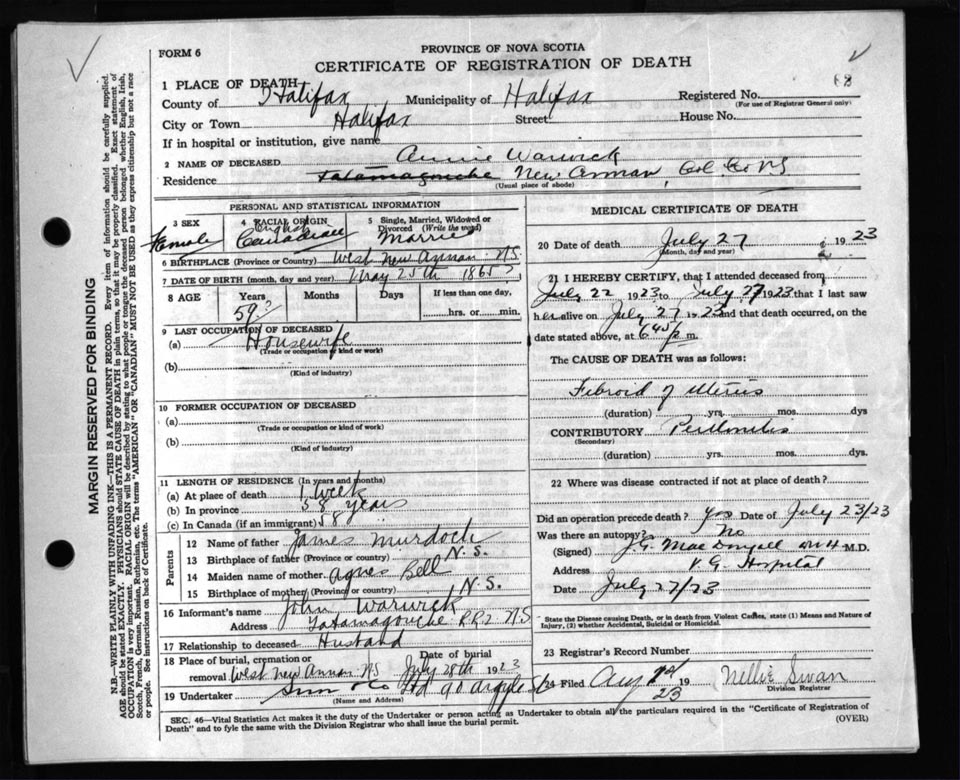 FORM 6
PROVINCE OF NOVA SCOTIA
CERTIFICATE OF REGISTRATION OF DEATH
1 PLACE OF DEATH
County of Halifax Municipality of Halifax Registered No.
(For use of Registrar General only)
City or Town Halifax Street House No.
If in hospital or institution, give name
2 NAME OF DECEASED Annie Warwick
Residence Tatamagouche New Annan, Col. Co NS
(Usual place of abode)
PERSONAL AND STATISTICAL INFORMATION
3 SEX Female
4 RACIAL ORIGIN English Canadian
5 Single, Married, Widowed or Divorced (Write the word) Married
6 BIRTHPLACE (Province or Country) West New Annan NS
7 DATE OF BIRTH (month, day and year) May 25th 1865?
8 AGE Years Months Days If less than one day,
59? hrs. or min.
9 LAST OCCUPATION OF DECEASED
(a) Housewife
(Trade or occupation or kind of work)
(b)
(Kind of industry)
10 FORMER OCCUPATION OF DECEASED
(a)
(Trade or occupation or kind of work)
(b)
(Kind of industry)
11 LENGTH OF RESIDENCE (In years and months)
(a) At place of death 1 week
(b) In province 58 years
(c) In Canada (if an immigrant) 58
Parents
12 Name of father James Murdoch
13 Birthplace of father (Province or country) N.S.
14 Maiden name of mother Agnes Bell
15 Birthplace of mother (Province or country) N.S.
16 Informant's name John Warwick
Address Tatamagouche RR2 NS
17 Relationship to deceased Husband
18 Place of burial, cremation or removal West New Annan NS Date of burial July 28th 1923
19 Undertaker Snow & Co Ltd 90 Argyle St
(Name and Address)
MEDICAL CERTIFICATE OF DEATH
20 Date of death July 27 1923
(Month, day and year)
21 I HEREBY CERTIFY, that I attended deceased from
July 22 1923 to July 27 1923 that I last saw
her alive on July 27 1923 and that death occurred, on
date stated above, at 6 45 p.m.
The CAUSE OF DEATH was as follows:
Febroid of Uterus
(duration) yrs. mos. dys
CONTRIBUTORY Peritonitis
(Secondary)
(duration) yrs. mos. dys.
22 Where was disease contracted if not at place of death?
Did an operation precede death? yes Date of July 23/23
Was there an autopsy? No
(Signed) J.G. MacDougall M.D.
Address V.G. Hospital
Date July 27/23
State the Disease causing Death, or in death from Violent Causes, state (1) Means and Nature of Injury, (2) whether Accidental, Suicidal or Homicidal.
23 Registrar's Record Number
24 Filed Aug 19 23 Nellie Swan
Division Registrar
SEC. 46—Vital Statistics Act makes it the duty of the Undertaker or person acting as Undertaker to obtain all the particulars required in the "Certificate of Registration of
Death" and to fyle the same with the Division Registrar who shall issue the burial permit.
(OVER)
MARGIN RESERVED FOR BINDING
N.B.—WRITE PLAINLY WITH UNFADING INK—THIS IS A PERMANENT RECORD. Every item of information should be carefully supplied.
AGE should be stated EXACTLY. PHYSICIANS should STATE CAUSE OF DEATH in plain terms, so that it may be properly classified. Exact statement of
OCCUPATION is very important. RACIAL ORIGIN will be described by stating to what people or tongue the deceased person belonged whether English, Irish,
Scotch, French, German, Russian, Ruthenian, etc. The terms "AMERICAN" OR "CANADIAN" MUST NOT BE USED as they express citizenship but not a race
or people. See instructions on back of Certificate.